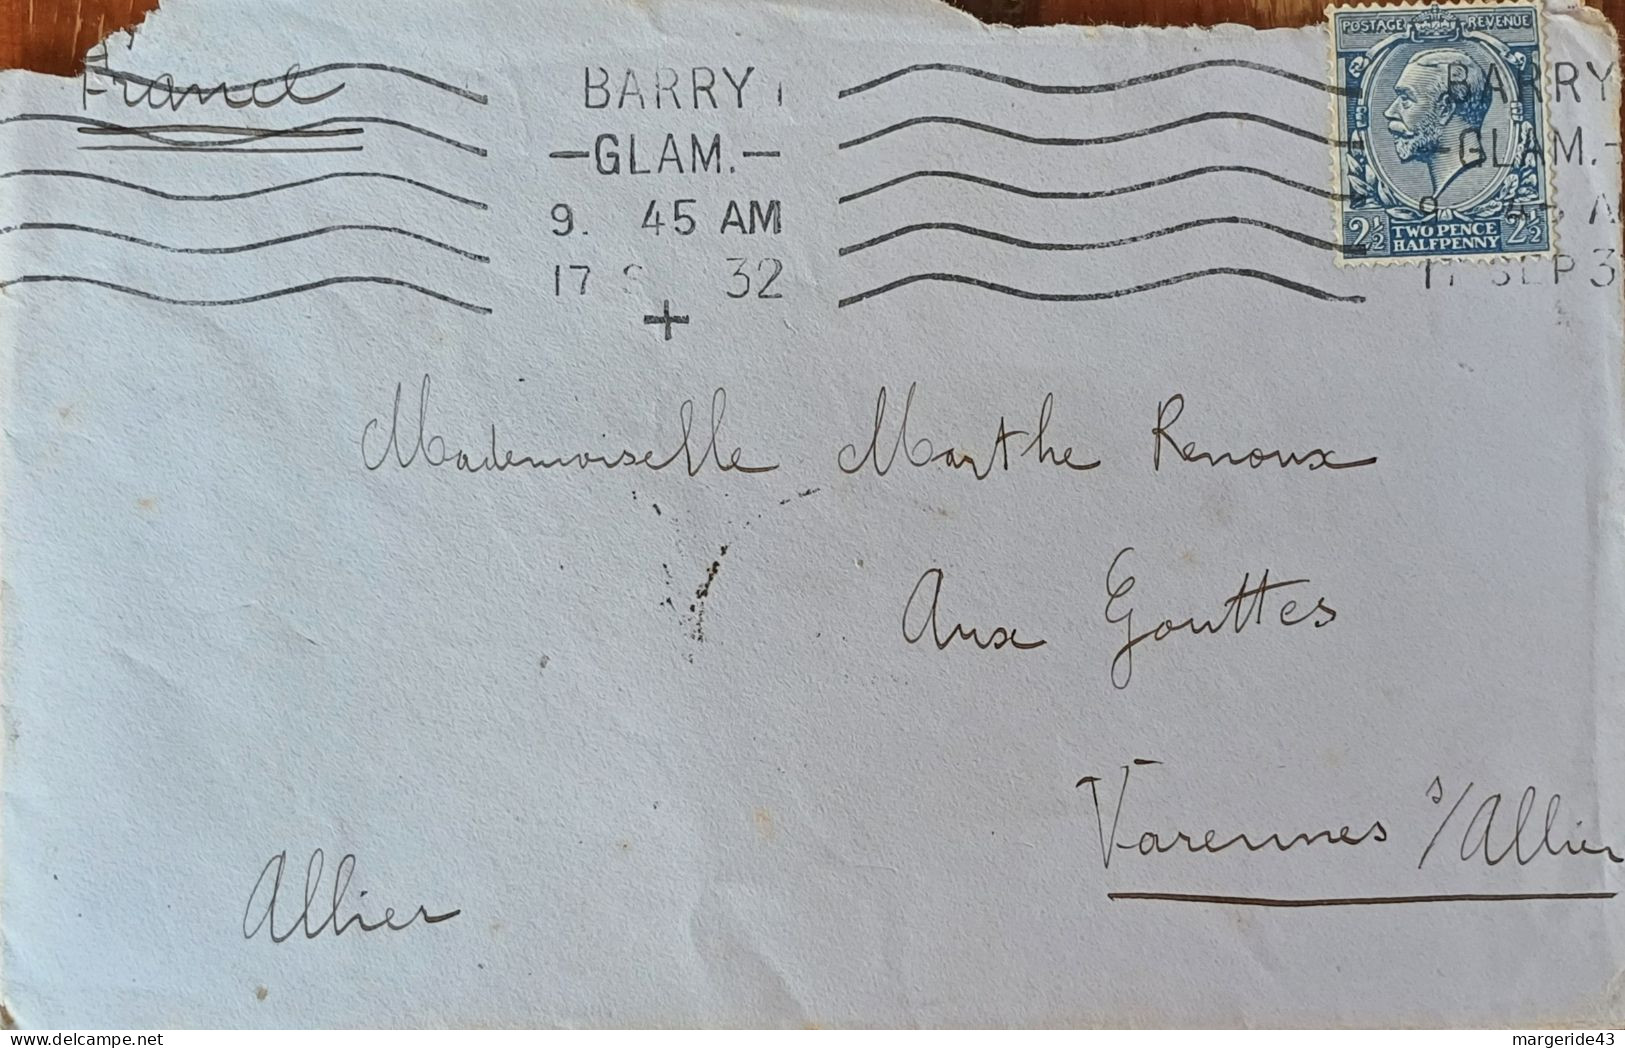 France
BARRY
-GLAM.-
9. 45 AM
17 S 32
+
POSTAGE REVENUE
2½ TWO PENCE HALFPENNY 2½
BARRY
-GLAM.-
9. 45 A
17 SEP 3
Mademoiselle Marthe Renoux
Aux Gouttes
Varennes s/Allier
Allier
margeride43